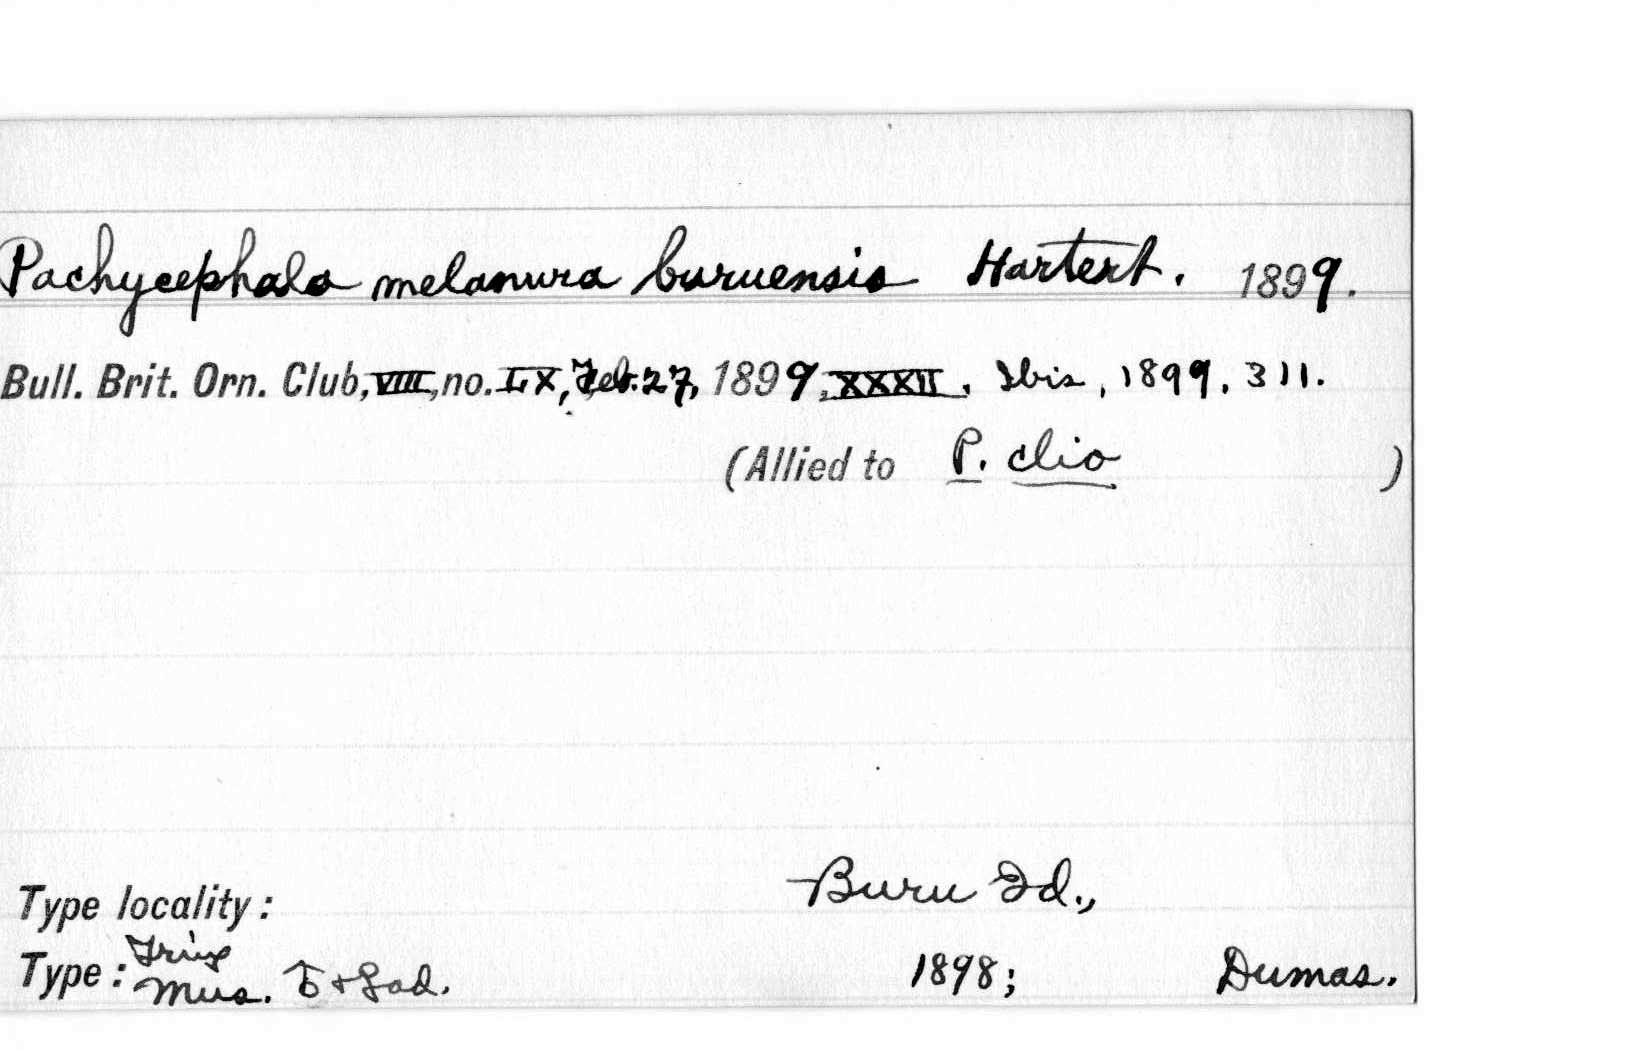 Pachycephala melanura buruensis Hartert. 1899.
Bull. Brit. Orn. Club, VIII, no. LX, Feb. 27, 1899, XXXII. Ibis, 1899, 311.
(Allied to P. clio )
Type locality: Buru Id.,
Type: Tring Mus. ♂ + ad. 1898; Dumas.